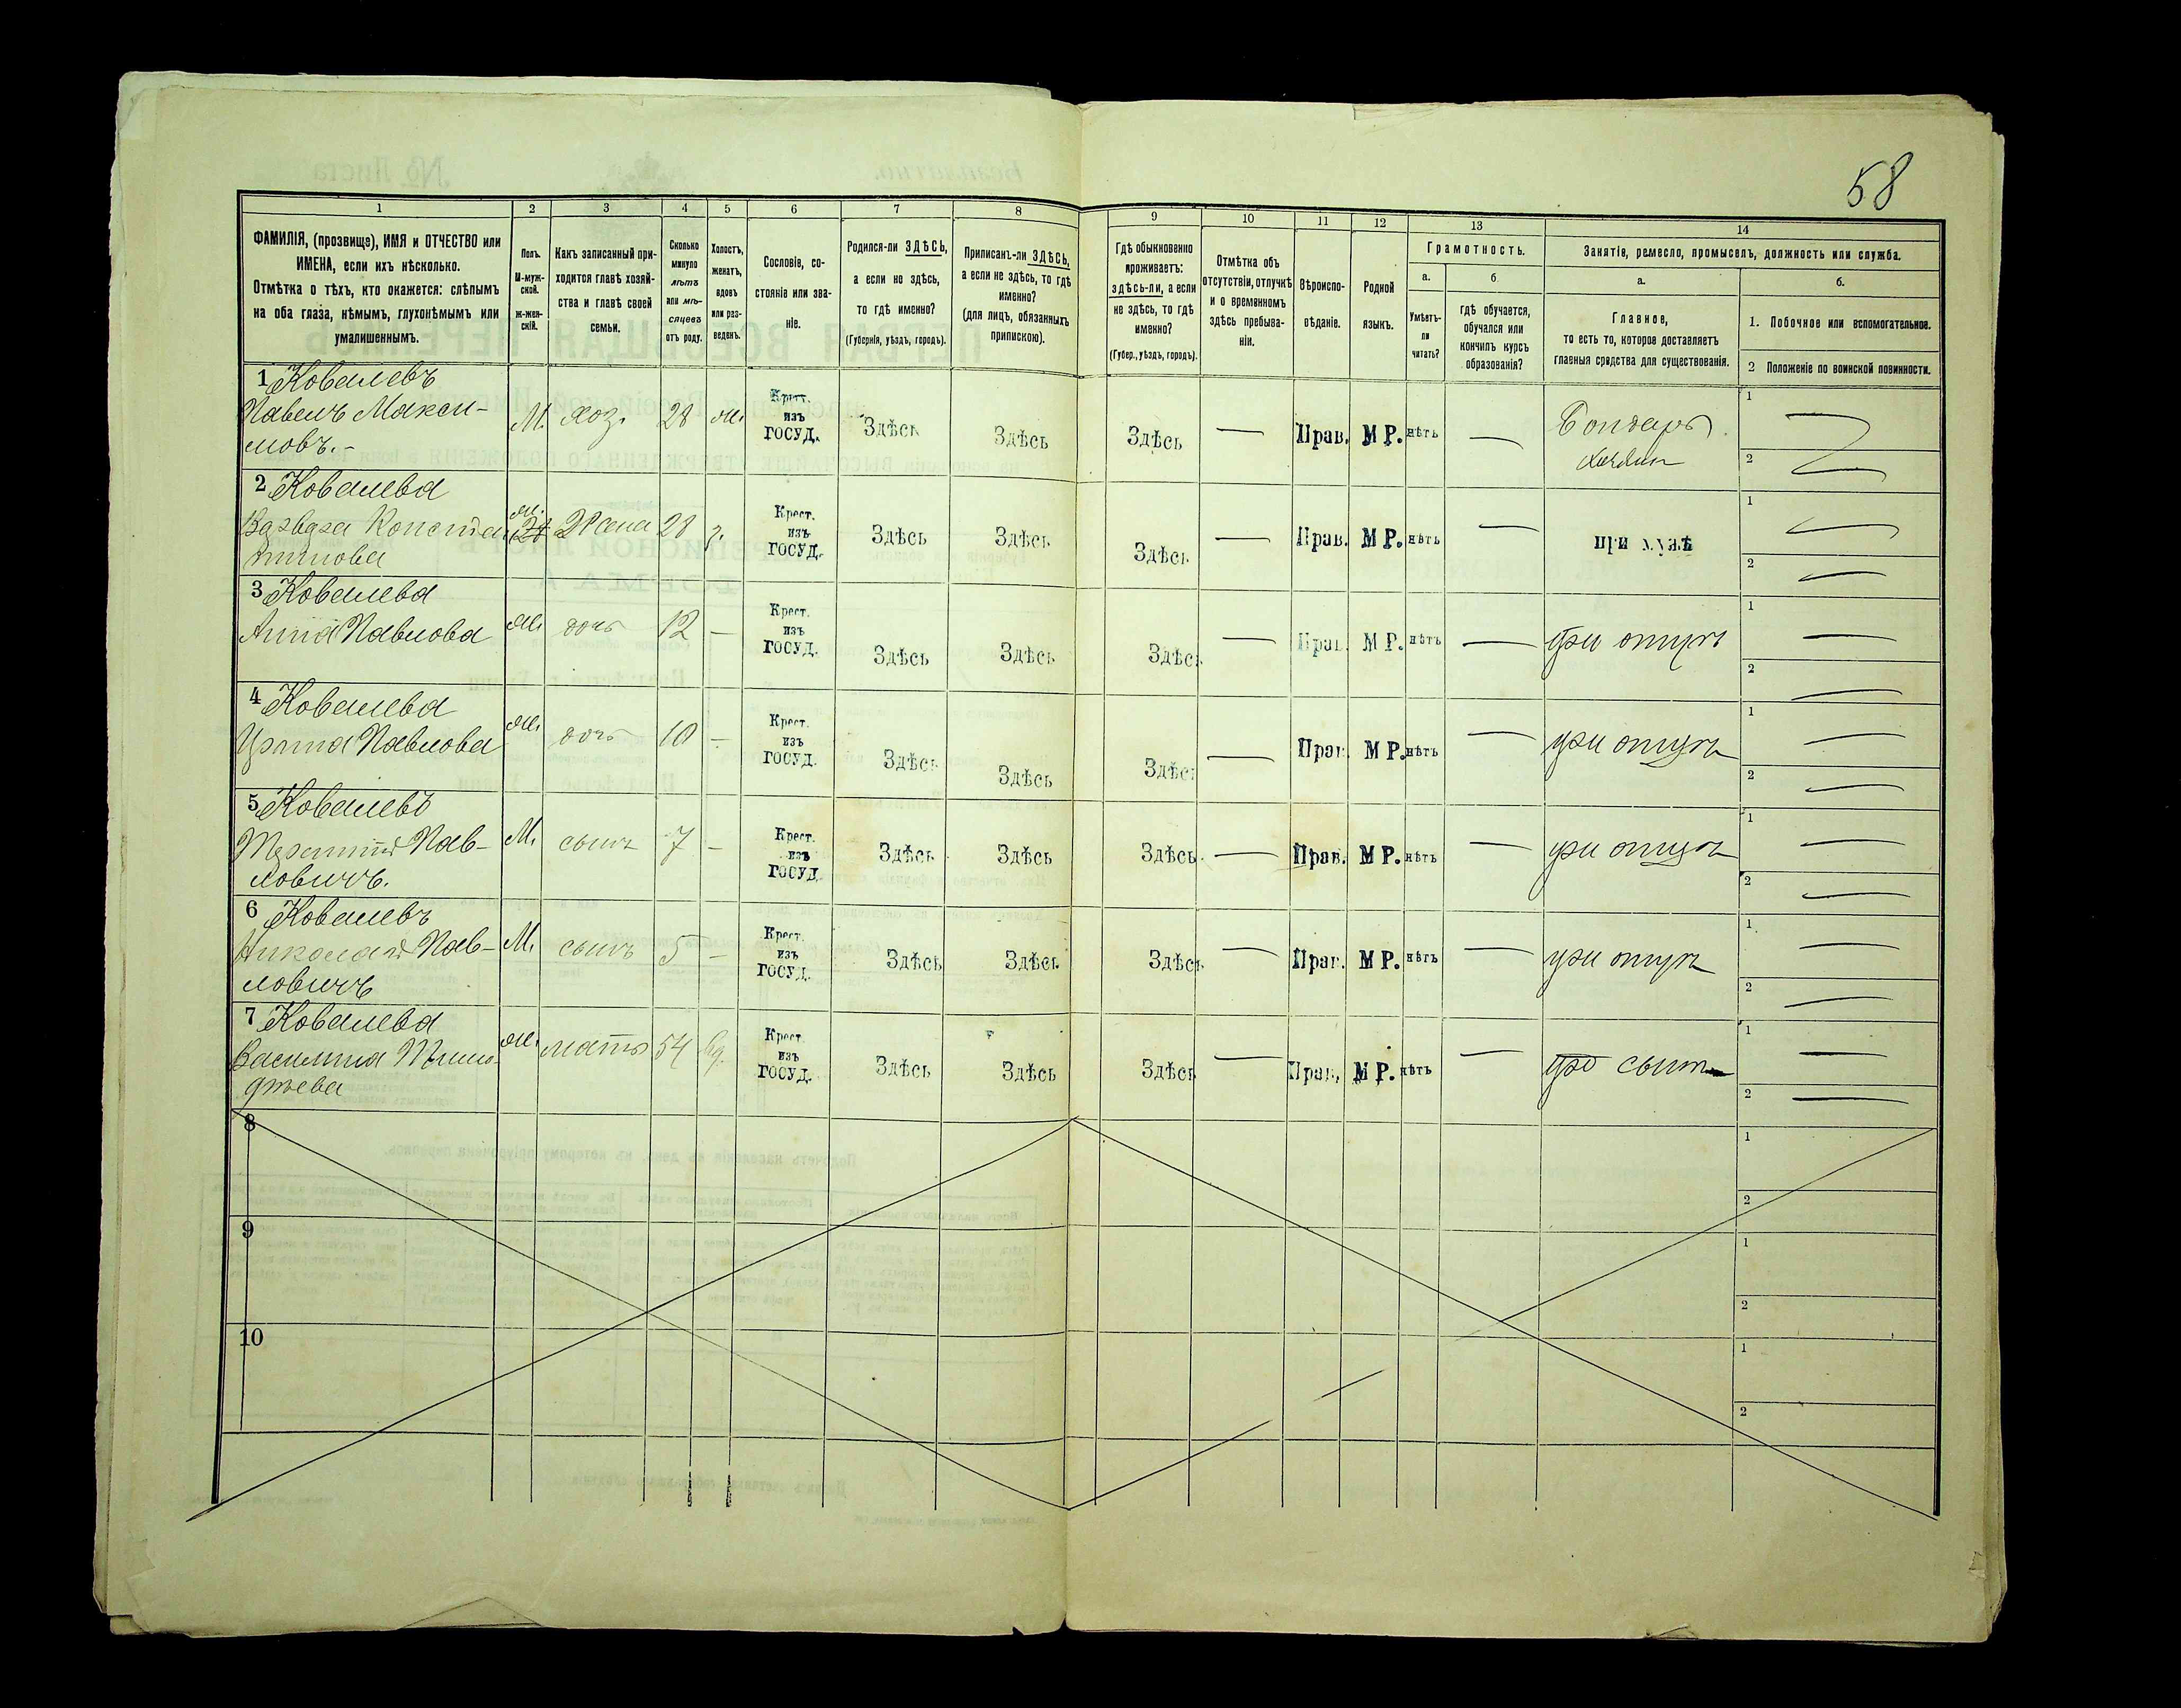 58
1 2 3 4 5 6 7 8 9 10 11 12 13 14
ФАМИЛІЯ, (прозвище), ИМЯ и ОТЧЕСТВО или
ИМЕНА, если ихъ нѣсколько.
Отмѣтка о тѣхъ, кто окажется: слѣпымъ
на оба глаза, нѣмымъ, глухонѣмымъ или
умалишеннымъ.
Полъ.
М-муж-
ской.
ж-жен-
скій.
Какъ записанный при-
ходится главѣ хозяй-
ства и главѣ своей
семьи.
Сколько
минуло
лѣтъ
или мѣ-
сяцевъ
отъ роду.
Холостъ,
женатъ,
вдовъ
или раз-
веденъ.
Сословіе, со-
стояніе или зва-
ніе.
Родился-ли ЗДѢСЬ,
а если не здѣсь,
то гдѣ именно?
(Губернія, уѣздъ, городъ).
Приписанъ-ли ЗДѢСЬ,
а если не здѣсь, то гдѣ
именно?
(для лицъ, обязанныхъ
припискою).
Гдѣ обыкновенно
проживаетъ:
здѣсь-ли, а если
не здѣсь, то гдѣ
именно?
(Губер., уѣздъ, городъ).
Отмѣтка объ
отсутствіи, отлучкѣ
и о временномъ
здѣсь пребыва-
ніи.
Вѣроиспо-
вѣданіе.
Родной
языкъ.
Грамотность.
а.
Умѣетъ-
ли
читать?
б.
гдѣ обучается,
обучался или
кончилъ курсъ
образованія?
Занятіе, ремесло, промыселъ, должность или служба.
а.
Главное,
то есть то, которое доставляетъ
главныя средства для существованія.
б.
1. Побочное или вспомогательное.
2 Положеніе по воинской повинности.
1 Ковалевъ
Павелъ Макси-
мовъ.
М. хоз. 28 ж. Крест. изъ ГОСУД. Здѣсь Здѣсь Здѣсь — Прав. М Р. нѣтъ — Бондарь
хозяин
1
2
2 Ковалева
Варвара Констан
тинова
ж. Жена 28 з. Крест. изъ ГОСУД. Здѣсь Здѣсь Здѣсь — Прав. М Р. нѣтъ — при мужѣ
1
2
3 Ковалева
Анна Павлова
ж. дочь 12 — Крест. изъ ГОСУД. Здѣсь Здѣсь Здѣсь — Прав. М Р. нѣтъ — при отцѣ
1
2
4 Ковалева
Ирина Павлова
ж. дочь 10 — Крест. изъ ГОСУД. Здѣсь Здѣсь Здѣсь — Прав. М Р. нѣтъ — при отцѣ
1
2
5 Ковалевъ
Терентій Пав-
ловичъ.
М. сынъ 7 — Крест. изъ ГОСУД. Здѣсь Здѣсь Здѣсь — Прав. М Р. нѣтъ — при отцѣ
1
2
6 Ковалевъ
Николай Пав-
ловичъ
М. сынъ 5 — Крест. изъ ГОСУД. Здѣсь Здѣсь Здѣсь — Прав. М Р. нѣтъ — при отцѣ
1
2
7 Ковалева
Василиса Тимо-
фѣева
ж. мать 54 вд. Крест. изъ ГОСУД. Здѣсь Здѣсь Здѣсь — Прав. М Р. нѣтъ — при сынѣ
1
2
8
1
2
9
1
2
10
1
2